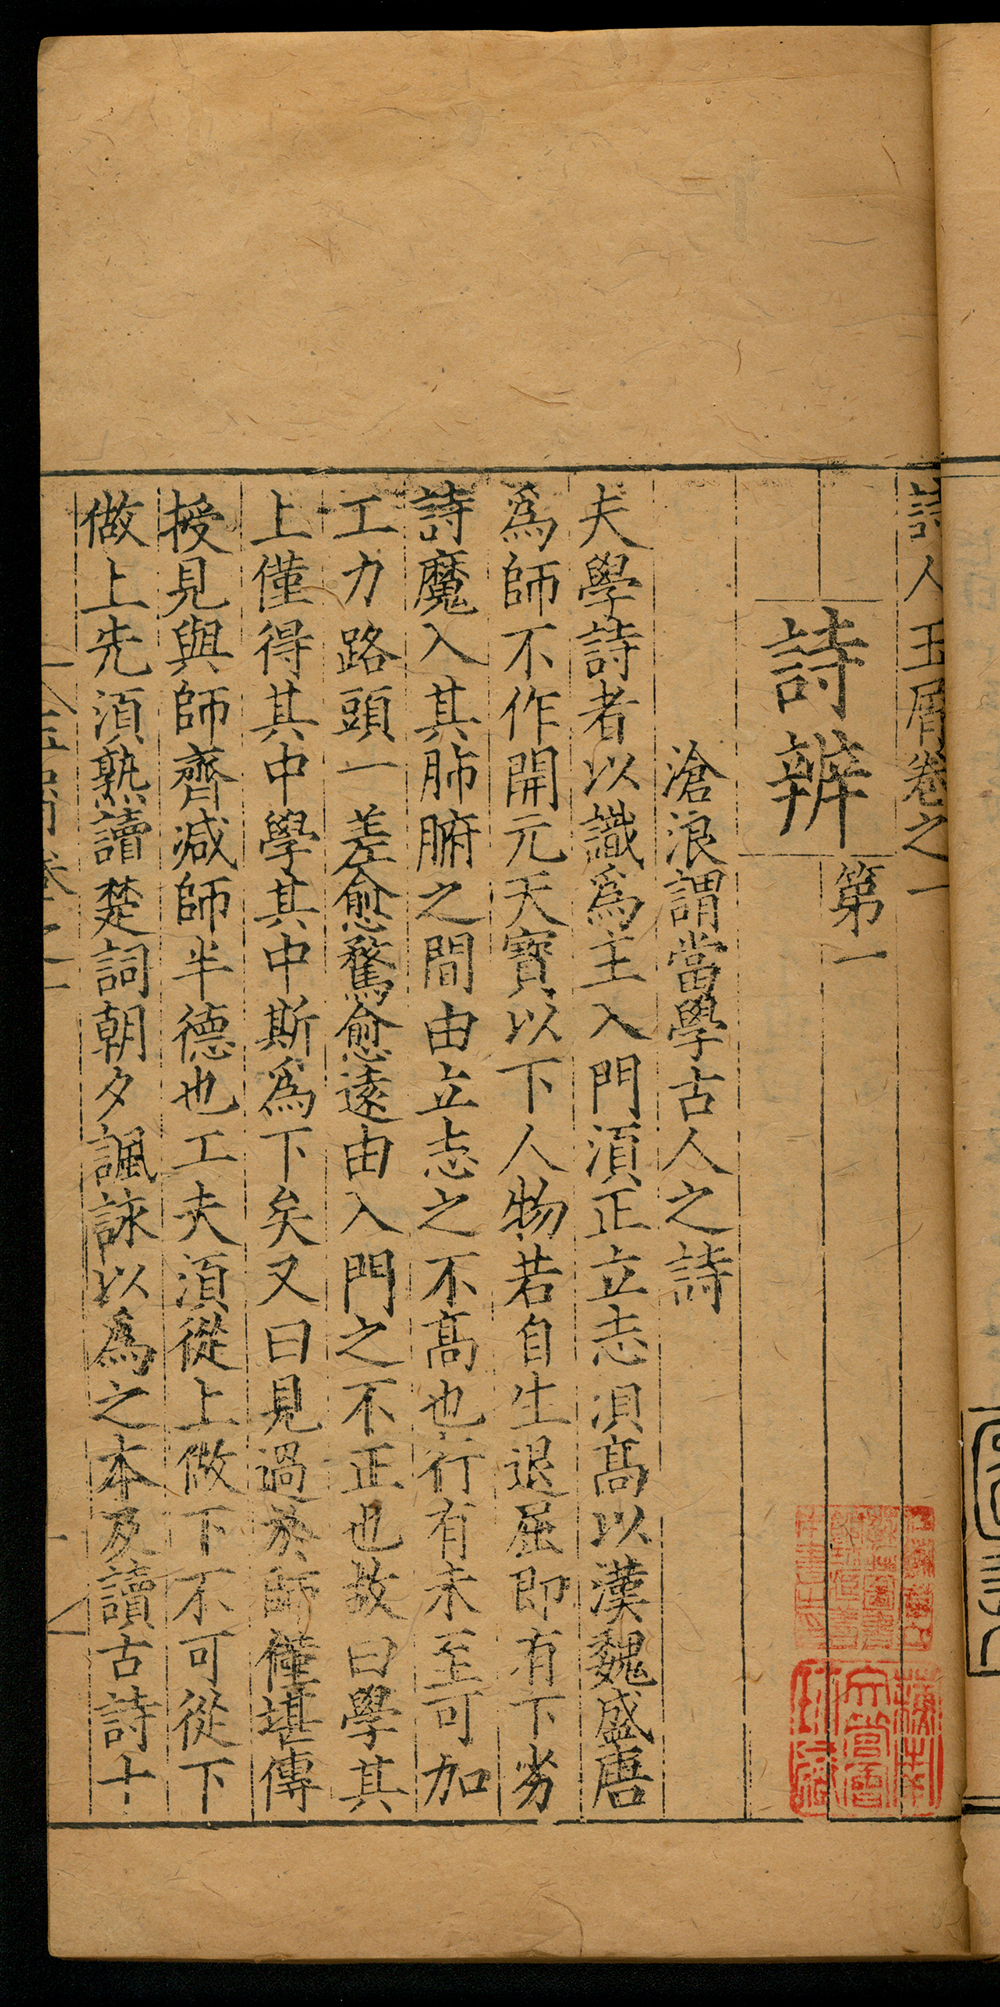 詩人玉屑卷之一
詩辨第一
滄浪謂當學古人之詩
夫學詩者以識為主入門湏正立志湏髙以漢魏盛唐
為師不作開元天寳以下人物若自生退屈即有下劣
詩魔入其肺腑之間由立志之不髙也行有未至可加
工力路頭一差愈騖愈遠由入門之不正也故曰學其
上僅得其中學其中斯為下矣又曰見過於師僅堪傳
授見與師齊减師半德也工夫湏從上做下不可從下
做上先湏熟讀楚詞朝夕諷詠以為之本及讀古詩十